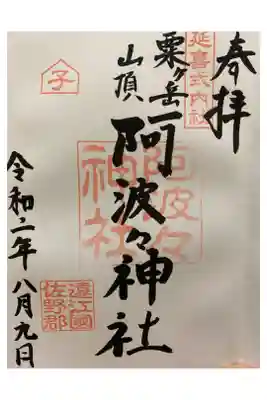 奉拝
延喜式内社
粟ヶ岳
山頂
阿波々神社
阿波々神社
子
遠江國
佐野郡
令和二年八月九日